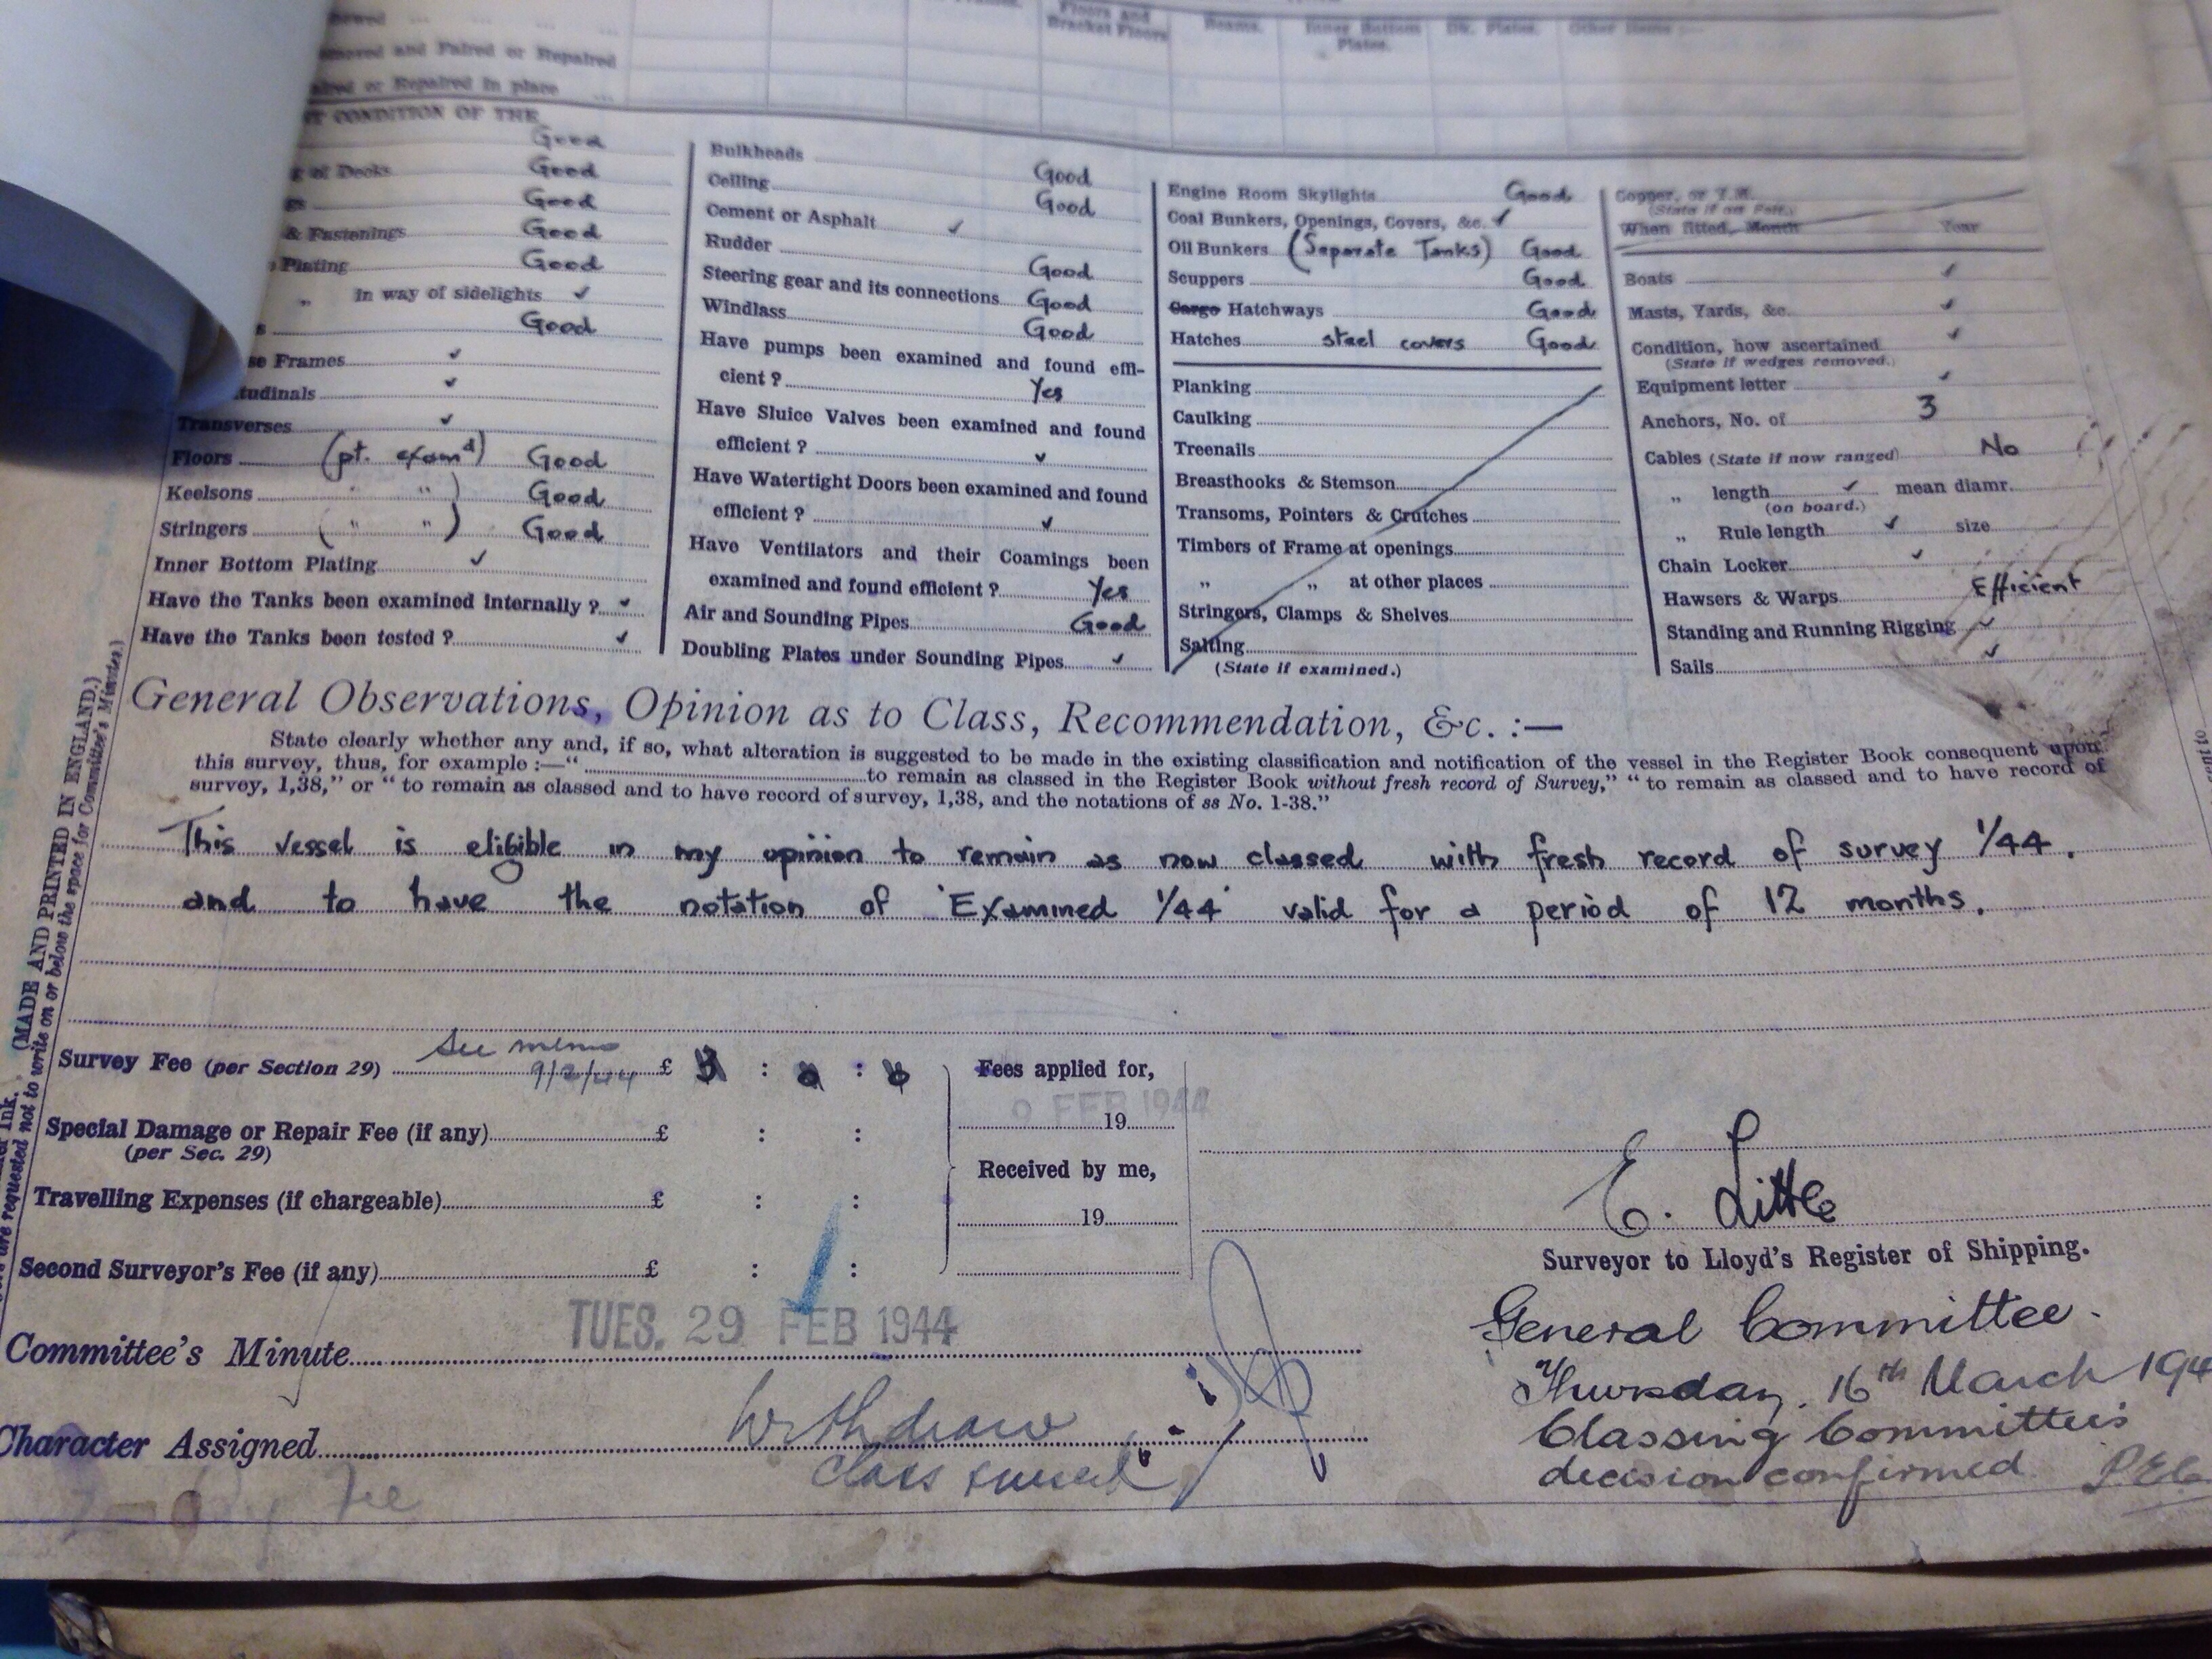 Floors and
Bracket Floors
Beams.
Inner Bottom
Plates.
Dk. Plates.
Other Items :—
and Faired or Repaired
or Repaired in place
CONDITION OF THE
Good
of Decks Good
Good
& Fastenings Good
Plating Good
„ in way of sidelights ✓
Good
Frames ✓
✓
Transverses ✓
Floors (pt. examd) Good
Keelsons " " ) Good
Stringers ( " " ) Good
Inner Bottom Plating ✓
Have the Tanks been examined internally ? ✓
Have the Tanks been tested ? ✓
Bulkheads Good
Ceiling Good
Cement or Asphalt ✓
Rudder Good
Steering gear and its connections Good
Windlass Good
Have pumps been examined and found effi-
cient ? Yes
Have Sluice Valves been examined and found
efficient ? ✓
Have Watertight Doors been examined and found
efficient ? ✓
Have Ventilators and their Coamings been
examined and found efficient ? Yes
Air and Sounding Pipes Good
Doubling Plates under Sounding Pipes ✓
Engine Room Skylights Good
Coal Bunkers, Openings, Covers, &c. ✓
Oil Bunkers (Separate Tanks) Good
Scuppers Good
Cargo Hatchways Good
Hatches steel covers Good
Planking
Caulking
Treenails
Breasthooks & Stemson
Transoms, Pointers & Crutches
Timbers of Frame at openings
„ „ at other places
Stringers, Clamps & Shelves
Salting
(State if examined.)
Copper, or Y.M.
(State if on Felt.)
When fitted, Month Year
Boats ✓
Masts, Yards, &c. ✓
Condition, how ascertained ✓
(State if wedges removed.)
Equipment letter ✓
Anchors, No. of 3
Cables (State if now ranged) No
„ length ✓ mean diamr.
(on board.)
„ Rule length ✓ size
Chain Locker ✓
Hawsers & Warps Efficient
Standing and Running Rigging ✓
Sails ✓
General Observations, Opinion as to Class, Recommendation, &c. :—
State clearly whether any and, if so, what alteration is suggested to be made in the existing classification and notification of the vessel in the Register Book consequent upon
this survey, thus, for example :—" to remain as classed in the Register Book without fresh record of Survey," " to remain as classed and to have record of
survey, 1,38," or " to remain as classed and to have record of survey, 1,38, and the notations of ss No. 1-38."
This vessel is eligible in my opinion to remain as now classed with fresh record of survey 1/44.
and to have the notation of 'Examined 1/44' valid for a period of 12 months.
(MADE AND PRINTED IN ENGLAND.)
are requested not to write on or below the space for Committee's Minutes.)
See memo
Survey Fee (per Section 29) 9/2/44 £ : :
Special Damage or Repair Fee (if any) £ : :
(per Sec. 29)
Travelling Expenses (if chargeable) £ : :
Second Surveyor's Fee (if any) £ : :
Fees applied for,
FEB 1944
19
Received by me,
19
E. Little
Surveyor to Lloyd's Register of Shipping.
Committee's Minute TUES. 29 FEB 1944
Character Assigned Withdraw
class
fee
General Committee.
Thursday. 16th March 194
Classing Committee's
decision confirmed